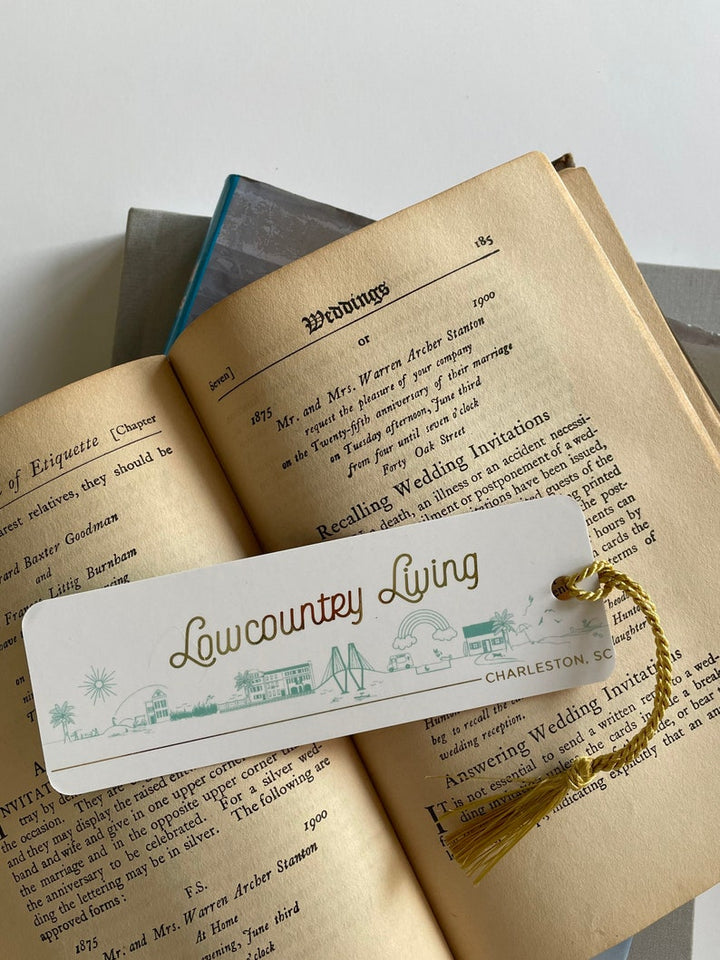 of Etiquette [Chapter
relatives, they should be
Baxter Goodman
and
Littig Burnham
185
Weddings
Seven]
or
1875 1900
Mr. and Mrs. Warren Archer Stanton
request the pleasure of your company
on the Twenty-fifth anniversary of their marriage
on Tuesday afternoon, June third
from four until seven o'clock
Forty Oak Street
Recalling Wedding Invitations
death, an illness or an accident necessi-
or postponement of a wed-
have been issued,
guests of the
printed
the post-
can
hours by
cards the
terms of
Lowcountry Living
CHARLESTON, SC
beg to recall the
wedding reception.
Answering Wedding Invitations
It is not essential to send a written reply to a wed-
ding invitation unless the cards include a break-
indicating explicitly that an
tray by
the occasion. They are
and they may display the raised
band and wife and give in one upper corner
the marriage and in the opposite upper corner
the anniversary to be celebrated. For a silver wed-
ding the lettering may be in silver. The following are
approved forms:
F.S.
1875 1900
Mr. and Mrs. Warren Archer Stanton
At Home
evening, June third
o'clock